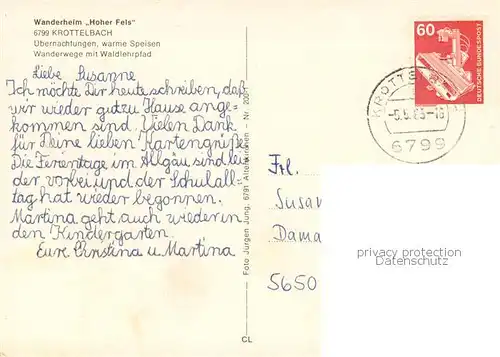 Wanderheim „Hoher Fels"
6799 KROTTELBACH
Übernachtungen, warme Speisen
Wanderwege mit Waldlehrpfad
Liebe Susanne
Ich möchte Dir heute schreiben, daß
wir wieder gut zu Hause ange-
kommen sind. Vielen Dank
für Deine lieben Kartengrüße.
Die Ferientage im Allgäu sind lei
der vorbei und der Schulall-
tag hat wieder begonnen.
Martina geht auch wieder in
den Kindergarten.
Eure Christina u Martina
Foto Jürgen Jung, 6791
CL
60
DEUTSCHE BUNDESPOST
6799
Frl.
Susan
Dama
5650
privacy protection
Datenschutz